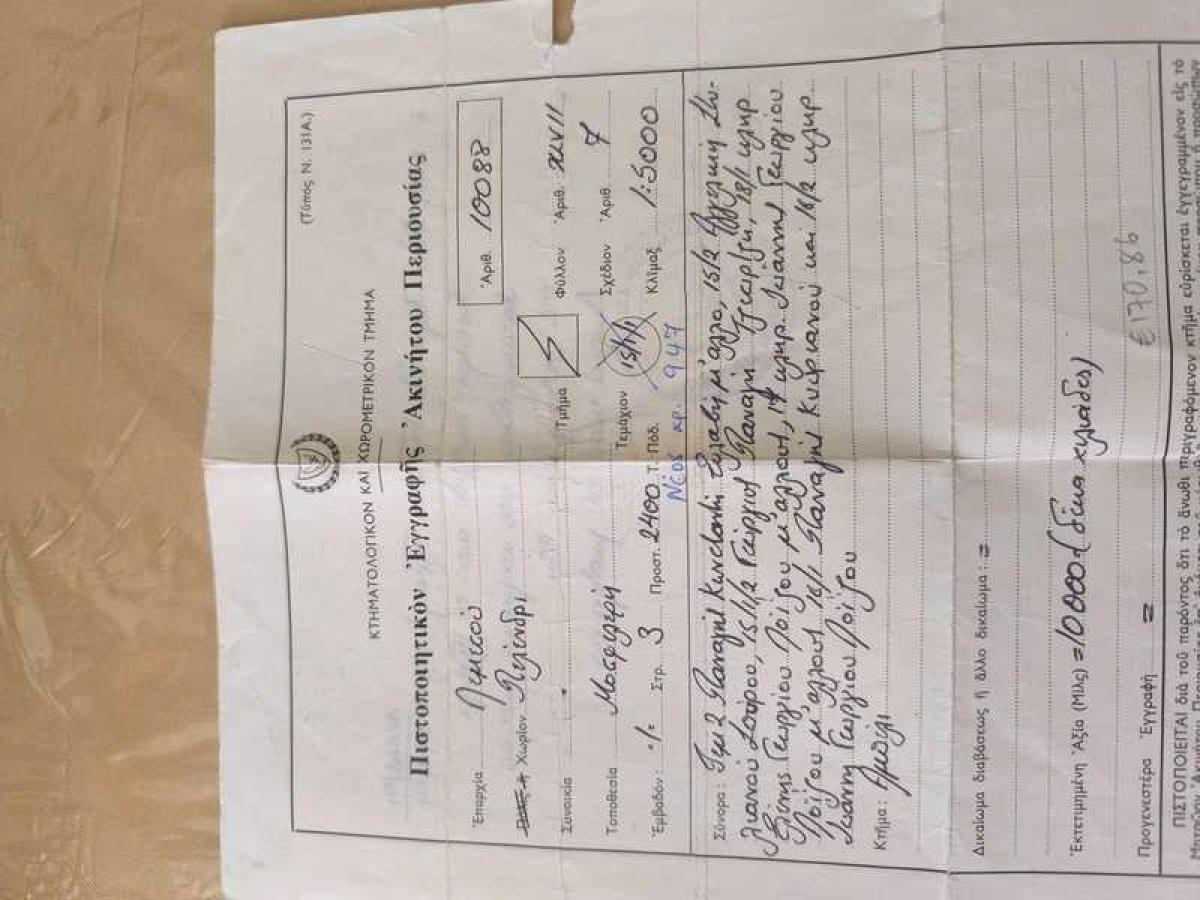 (Τύπος Ν. 131Α.)
ΚΤΗΜΑΤΟΛΟΓΙΚΟΝ ΚΑΙ ΧΩΡΟΜΕΤΡΙΚΟΝ ΤΜΗΜΑ
Πιστοποιητικὸν Ἐγγραφῆς Ἀκινήτου Περιουσίας
Ἀριθ. 10088
Ἐπαρχία Λεμεσού
Χωρίον Πελένδρι
Τμῆμα Φύλλον Ἀριθ. XLVII
Συνοικία
Σχέδιον Ἀριθ. 7
Τοποθεσία
Τεμάχιον 15/1/1 Κλῖμαξ 1:5000
Ἐμβαδόν: -/- Στρ. 3 Προστ. 2400 Τ. Πόδ.
Νέος αρ. 947
Σύνορα: Τεμ 2 Παναγιή Κωνσταντή μ' άλλο, 15/2
15/1/2 Γεώργιος Παναγή 18/1 κληρ
Ελένης Γεωργίου Λοΐζου μ' άλλους, 17 κληρ. Ιωάννη Γεωργίου
Λοΐζου μ' άλλους 16/1 Παναγιή Κυπριανού και 16/2 κληρ.
Ιωάννη Γεωργίου Λοΐζου
Κτῆμα: Αμπέλι
Δικαίωμα διαβάσεως ἢ ἄλλο δικαίωμα: =
Ἐκτετιμημένη Ἀξία (Μίλς) =10000= (δέκα χιλιάδες)
€170,86
Προγενεστέρα Ἐγγραφὴ =
ΠΙΣΤΟΠΟΙΕΙΤΑΙ διὰ τοῦ παρόντος ὅτι τὸ ἄνωθι περιγραφόμενον κτῆμα εὑρίσκεται ἐγγεγραμμένον εἰς τὸ